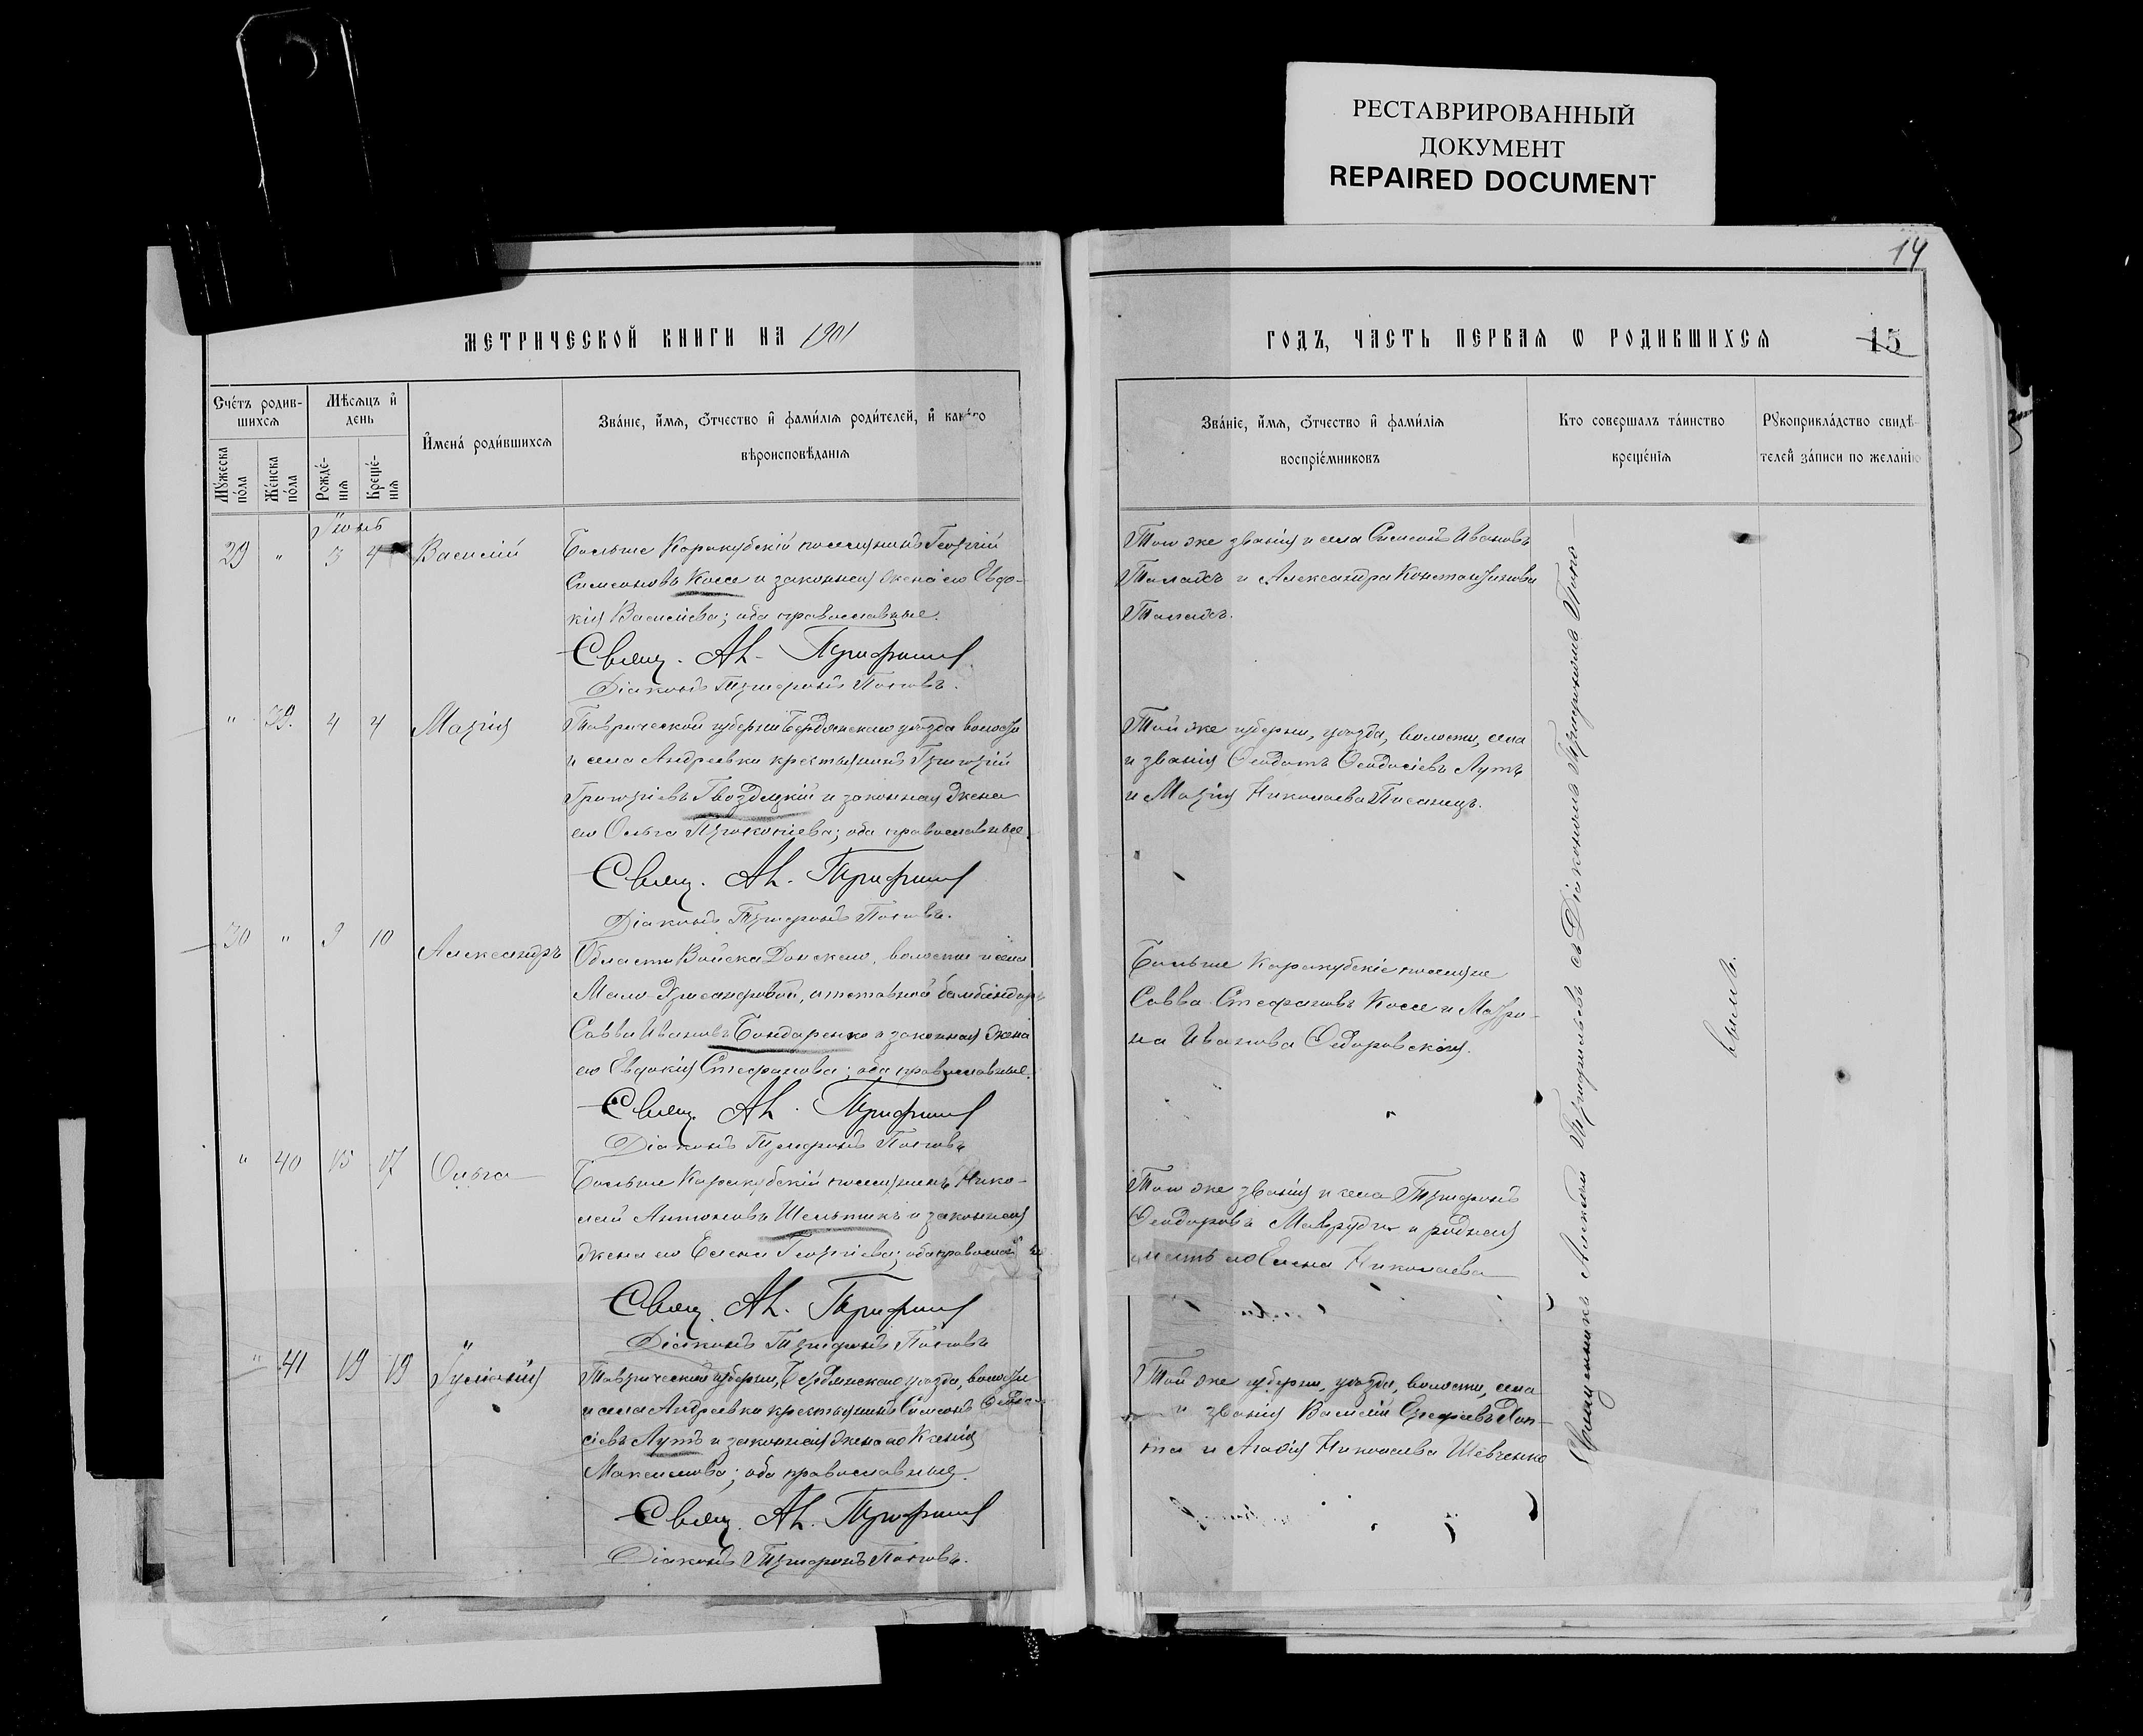 РЕСТАВРИРОВАННЫЙ
ДОКУМЕНТ
REPAIRED DOCUMENT
14
МЕТРИЧЕСКОЙ КНИГИ НА 1901
ГОДЪ, ЧАСТЬ ПЕРВАЯ Ѡ РОДИВШИХСЯ
15
Счетъ родив-
шихся
Мѣсяцъ и
день
Имена родившихся
Званіе, имя, отчество и фамилія родителей, и какого
вѣроисповѣданія
Мужеска
пола
Женска
пола
Рожде-
нія
Креще-
нія
Званіе, имя, отчество и фамилія
воспріемниковъ
Кто совершалъ таинство
крещенія
Рукоприкладство свидѣ-
телей записи по желанію
Іюнь
29 " 3 4 Василій
Больше Каракубскій поселянинъ Георгій
Симеоновъ Коссе и законная жена его Евдо-
кія Васильева; оба православные.
Свящ. Ал. Трифил
Діаконъ Трифонъ Поповъ.
Того же званія и села Симеонъ Ивановъ
Талахъ и Александра Константинова
Талахъ.
" 39. 4 4 Марія
Таврической губерніи Бердянскаго уѣзда волости
и села Андреевки крестьянинъ Григорій
Григоріевъ Гвоздецкій и законная жена
его Ольга Прокопіева; оба православные.
Свящ. Ал. Трифил
Діаконъ Трифонъ Поповъ.
Той же губерніи, уѣзда, волости, села
и званія Ѳеодотъ Ѳеодосіевъ Лутъ
и Марія Николаева Писанецъ.
30 " 9 10 Александръ
Области Войска Донскаго, волости и села
Мало-Хрисанфовой, отставной бомбандиръ
Савва Ивановъ Бондаренко и законная жена
его Евдокія Стефанова; оба православные.
Свящ. Ал. Трифил
Діаконъ Трифонъ Поповъ
Больше Каракубскіе поселяне
Савва Стефановъ Коссе и Матро-
на Иванова Ѳедоровская.
" 40 15 17 Ольга
Больше Каракубскій поселянинъ Нико-
лай Антоновъ Шельтикъ и законная
жена его Елена Георгіева; оба православ
Свящ. Ал. Трифил
Діаконъ Трифонъ Поповъ
Того же званія и села Трифонъ
Ѳеодоровъ Мавруди и родная
мать его Елена Николаева
" 41 19 19 Іуліанія
Таврической губерніи, Бердянскаго уѣзда, волости
и села Андреевки крестьянинъ Симеонъ Ѳеодо-
сіевъ Лутъ и законная жена его Ксенія
Максимова; оба православные.
Свящ. Ал. Трифил
Діаконъ Трифонъ Поповъ.
Той же губерніи, уѣзда, волости, села
и званія Василій
и Агафія Николаева Шевченко
Священникъ Алексѣй Трифильевъ съ Діакономъ Трифономъ Попо-
вымъ.